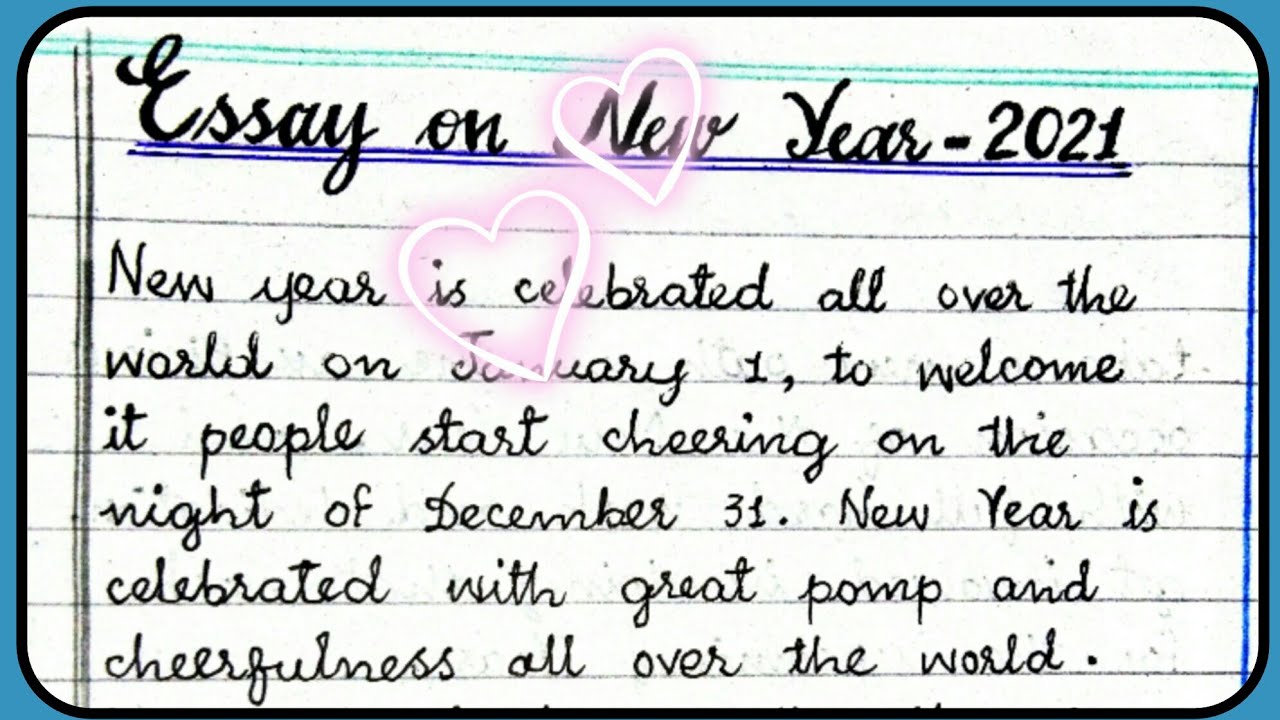 Essay on New Year - 2021
New year is celebrated all over the
world on January 1, to welcome
it people start cheering on the
night of December 31. New Year is
celebrated with great pomp and
cheerfulness all over the world.